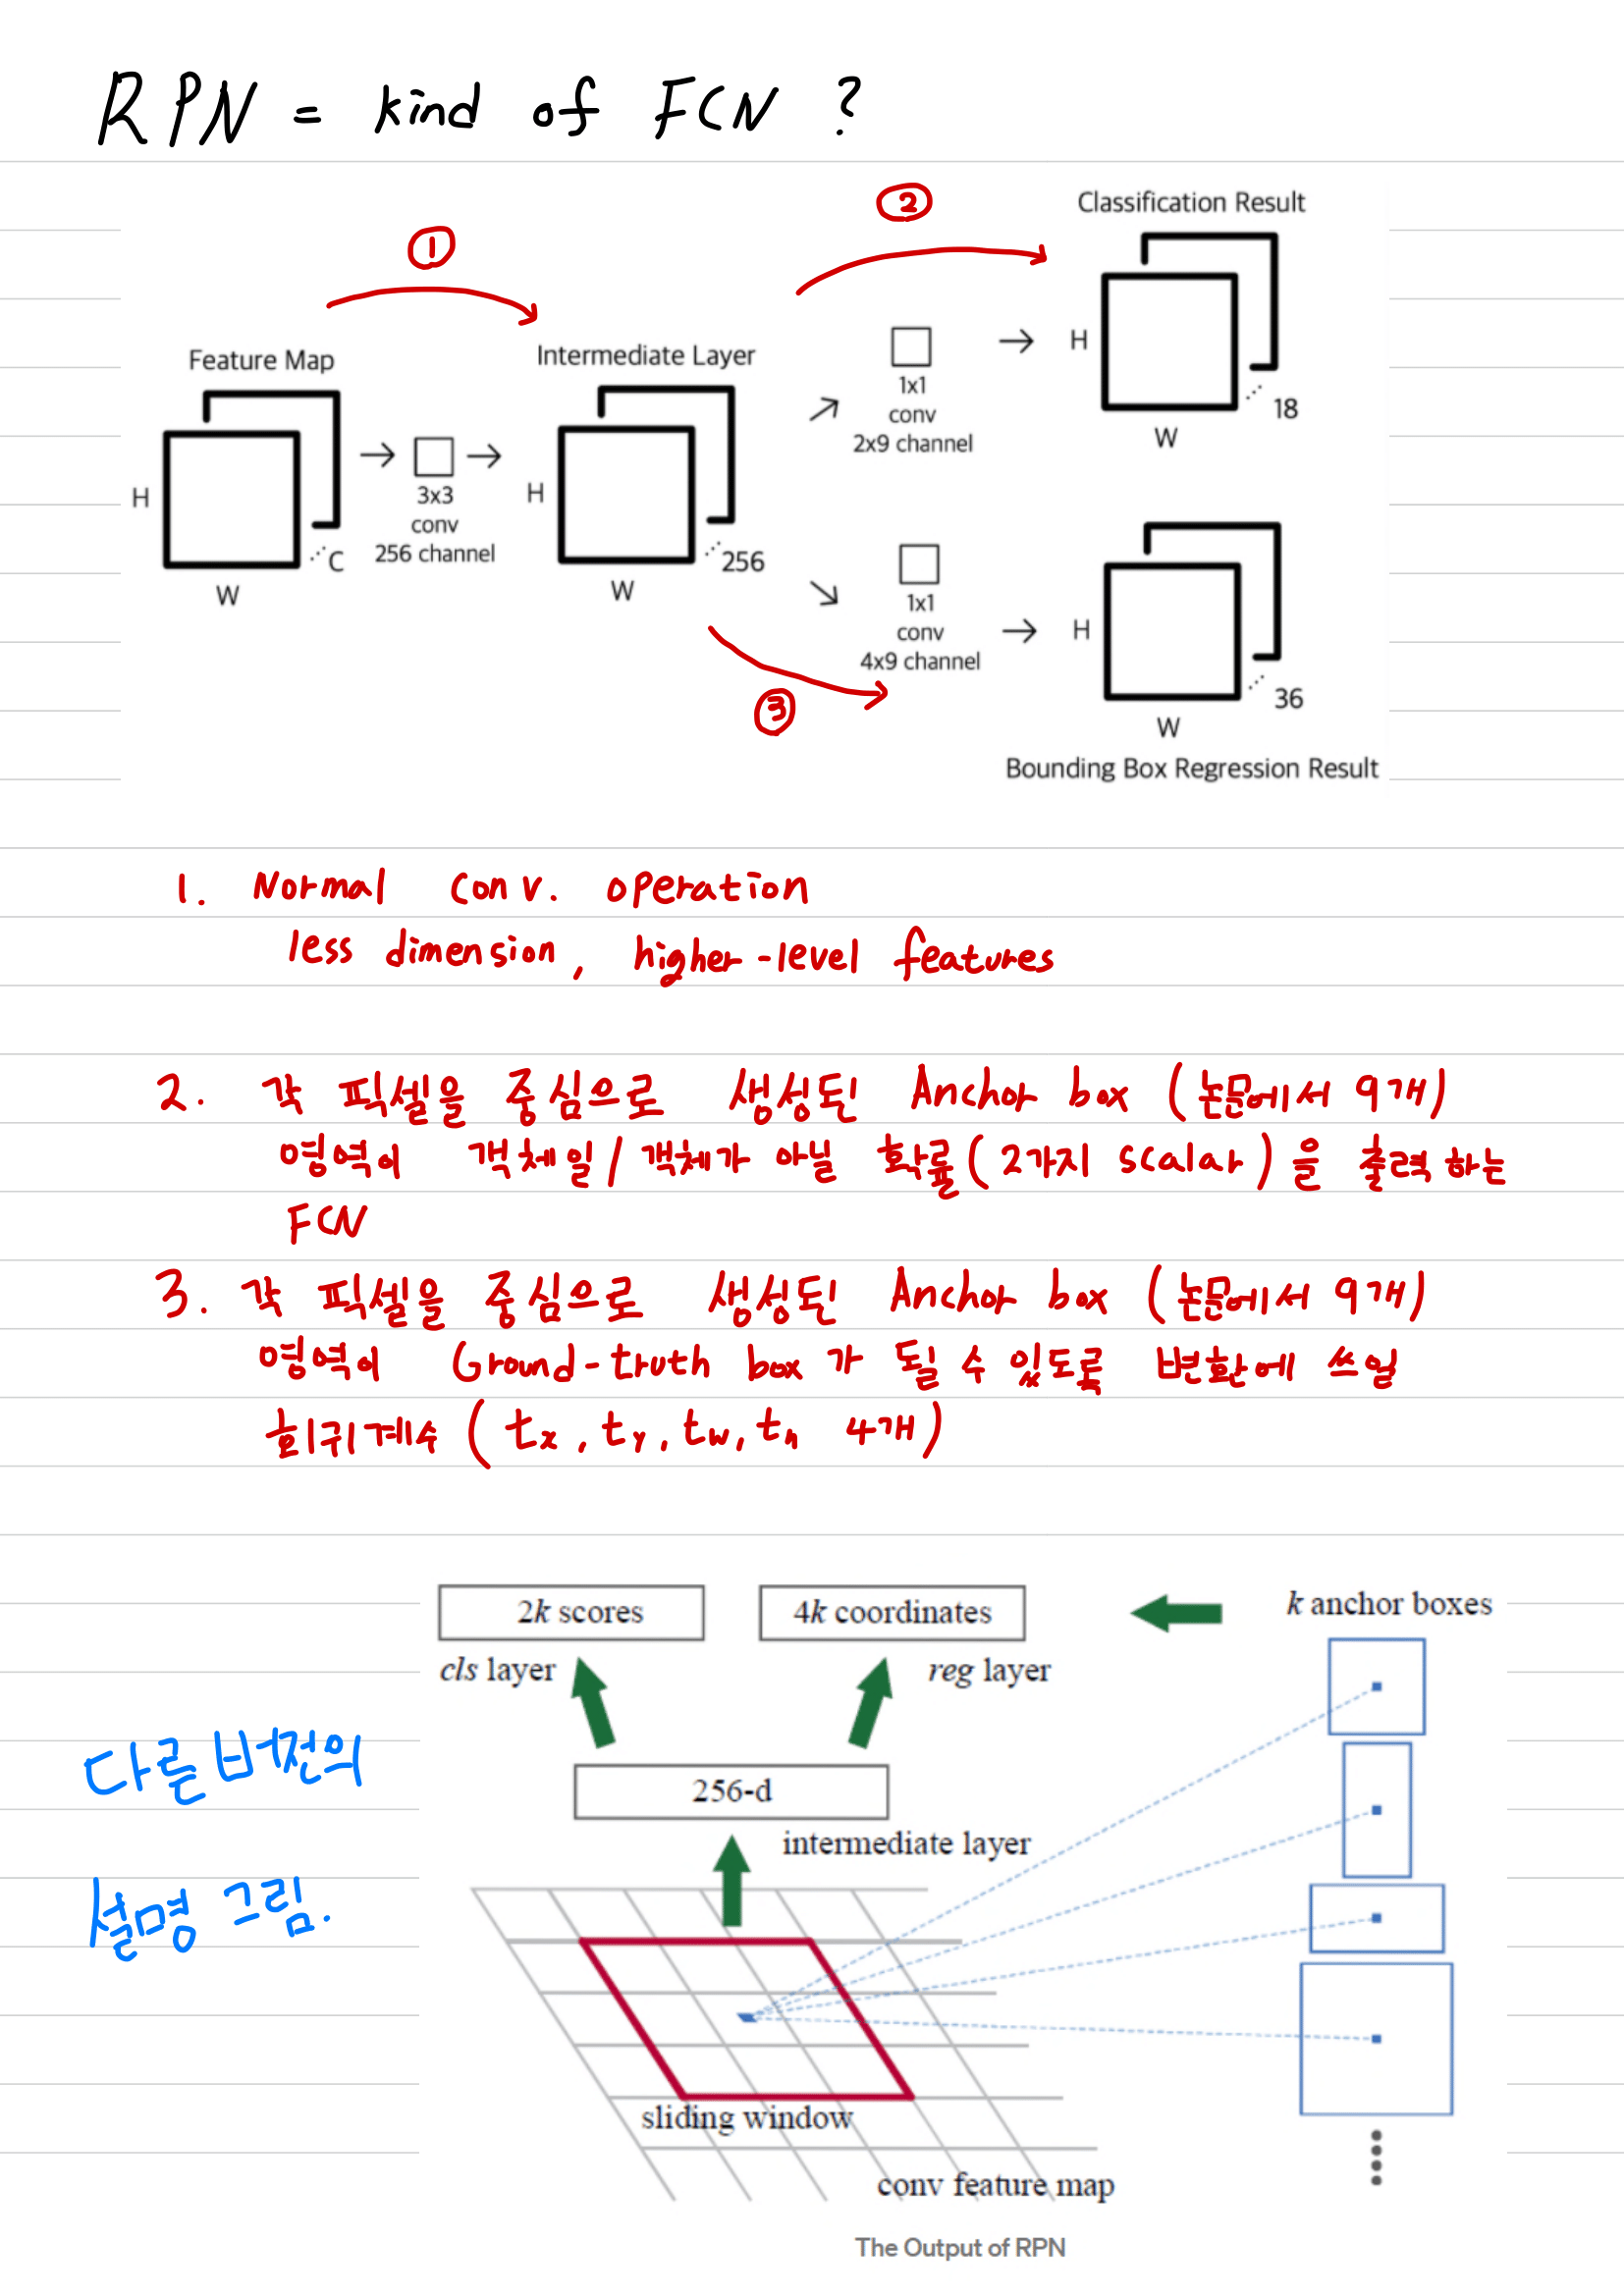 RPN = kind of FCN ?
①
②
Classification Result
Feature Map
Intermediate Layer
H
1x1
conv
2x9 channel
18
W
H
3x3
conv
256 channel
C
W
H
256
W
1x1
conv
4x9 channel
H
36
W
③
Bounding Box Regression Result
1. Normal conv. operation
less dimension, higher-level features
2. 각 픽셀을 중심으로 생성된 Anchor box (논문에서 9개)
영역이 객체일/객체가 아닐 확률(2가지 scalar)을 출력하는
FCN
3. 각 픽셀을 중심으로 생성된 Anchor box (논문에서 9개)
영역이 Ground-truth box가 될 수 있도록 변환에 쓰일
회귀계수 (tx, ty, tw, th 4개)
2k scores
4k coordinates
k anchor boxes
cls layer
reg layer
다른 버전의
설명 그림.
256-d
intermediate layer
sliding window
conv feature map
The Output of RPN